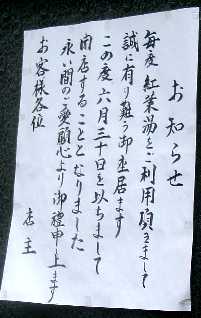 お知らせ
毎度紅葉湯をご利用頂きまして
誠に有り難う御座居ます
この度六月三十日を以ちまして
閉店することとなりました
永い間のご愛顧心より御禮申し上ます
お客様各位
店主